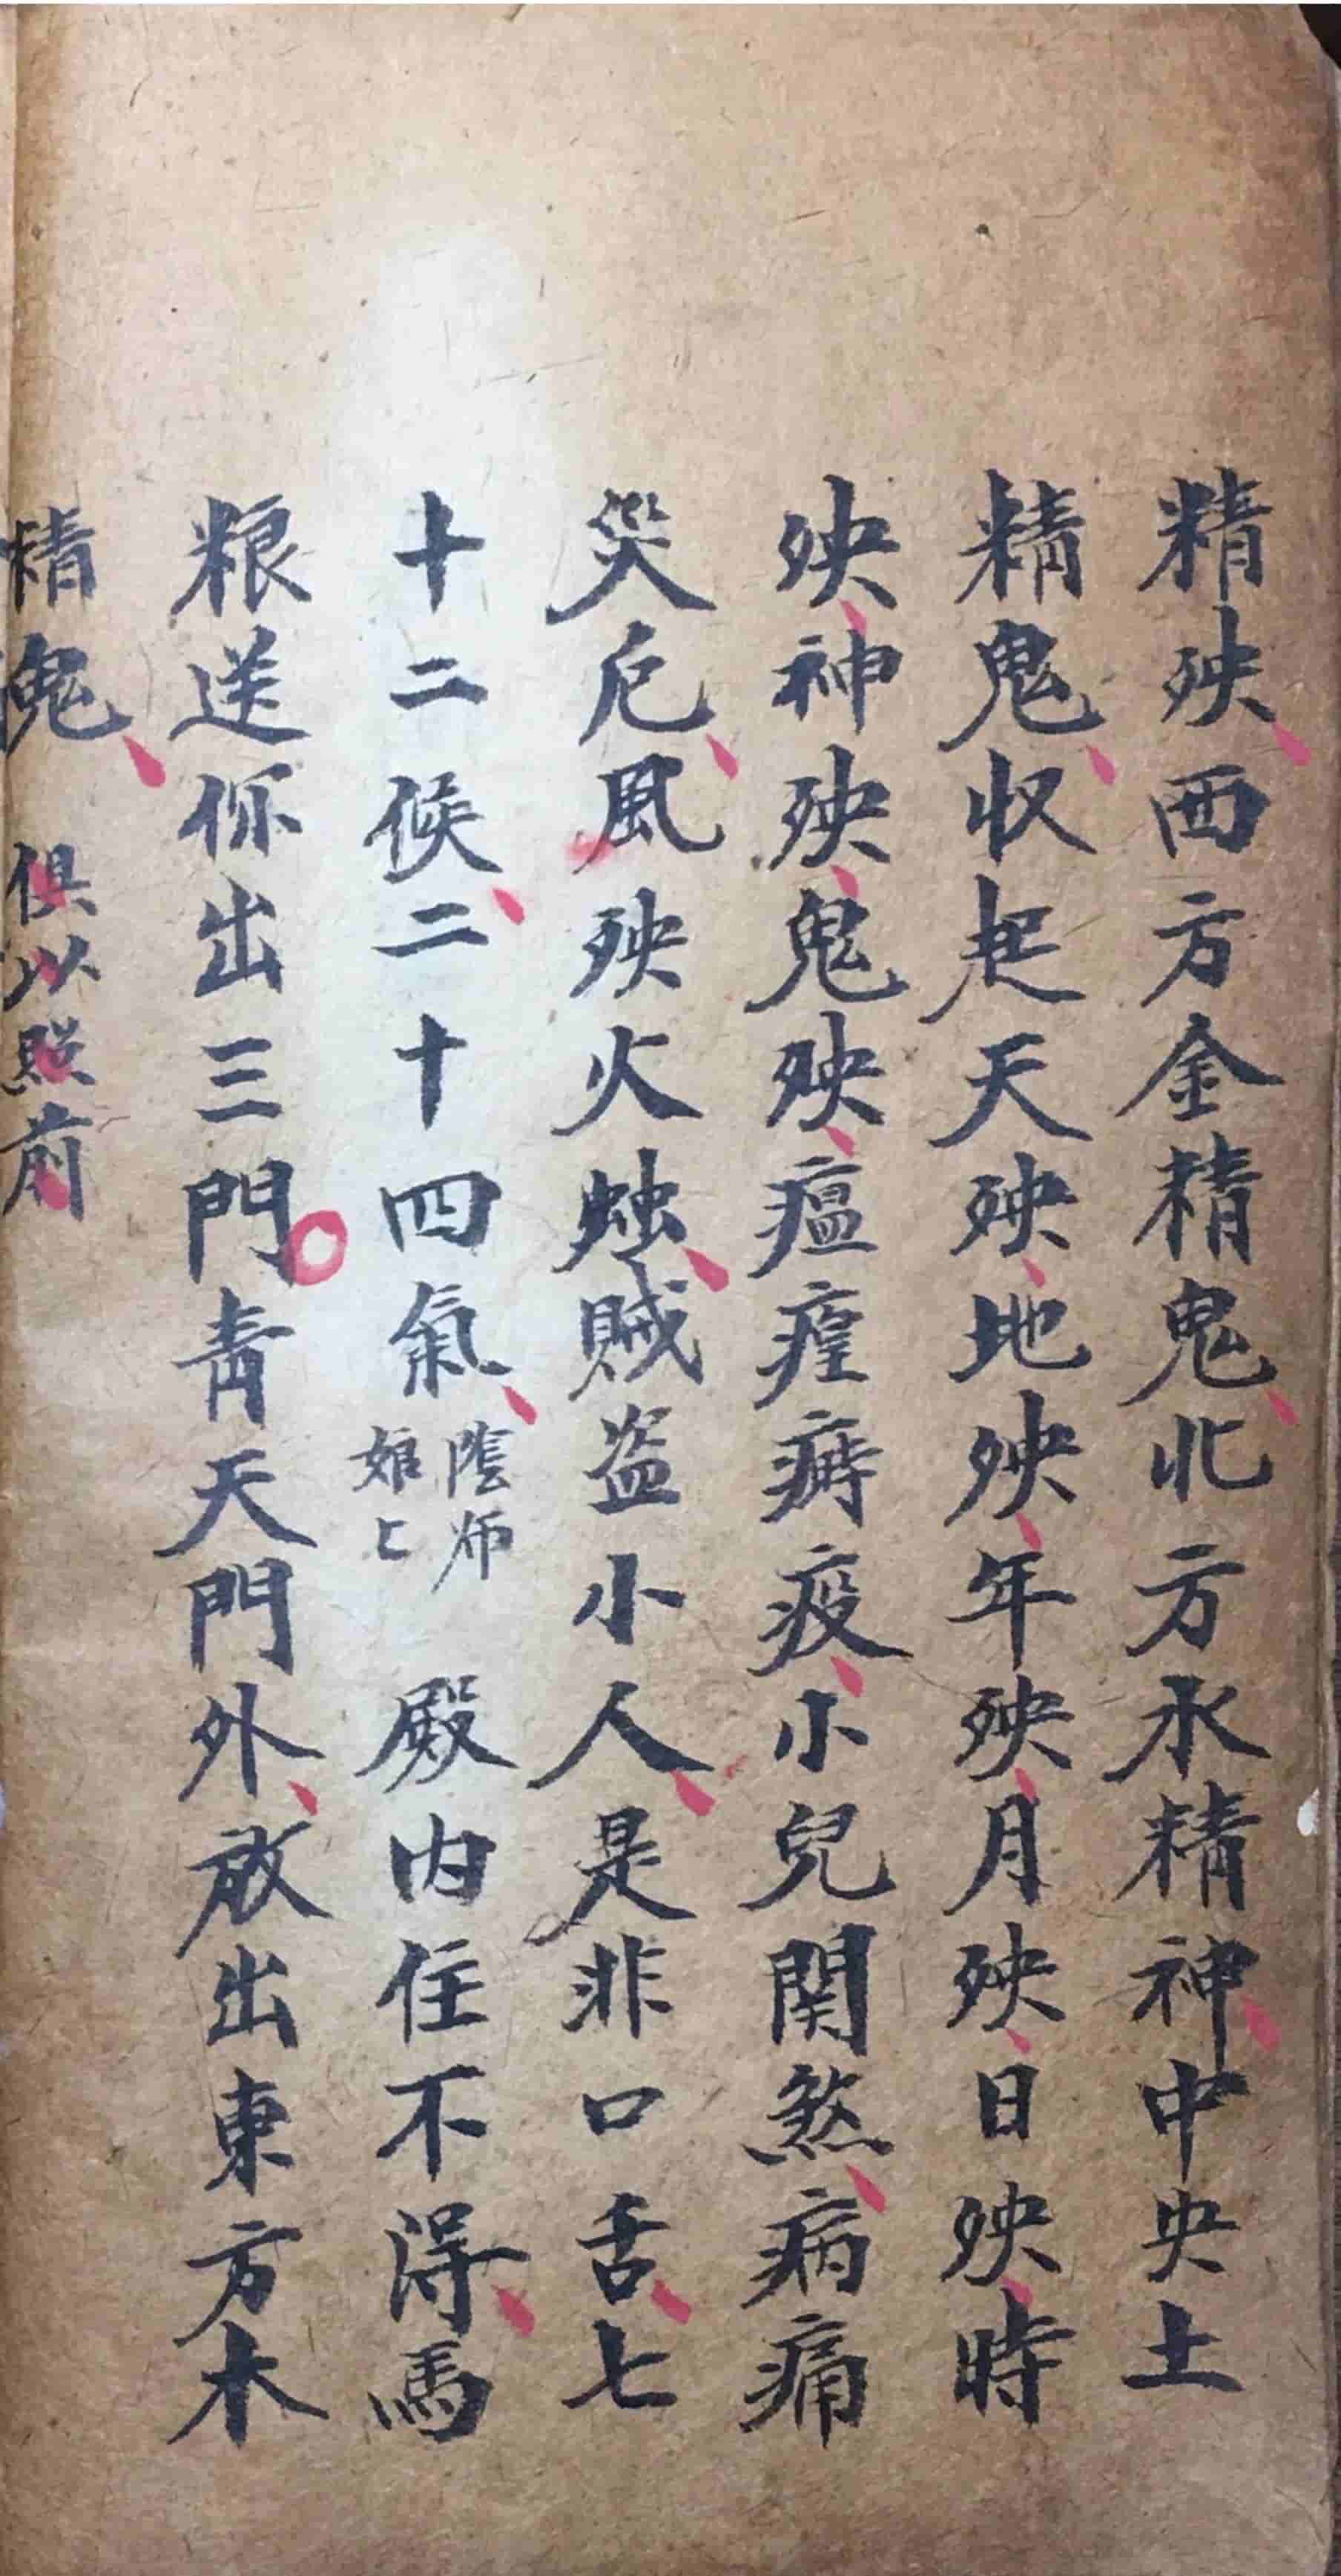 精殃、西方金精鬼、北方水精神、中央土
精鬼、收起天殃、地殃、年殃、月殃、日殃、時
殃、神殃、鬼殃、瘟𤶊痳疫、小兒関煞、病痛
災厄、風殃火蚀、賊盗小人、是非口舌、七
十二候、二十四氣、陰师娘〻 殿内住不淂、馬
粮送你出三門。青天門外、放出東方木
精鬼、 俱以照前